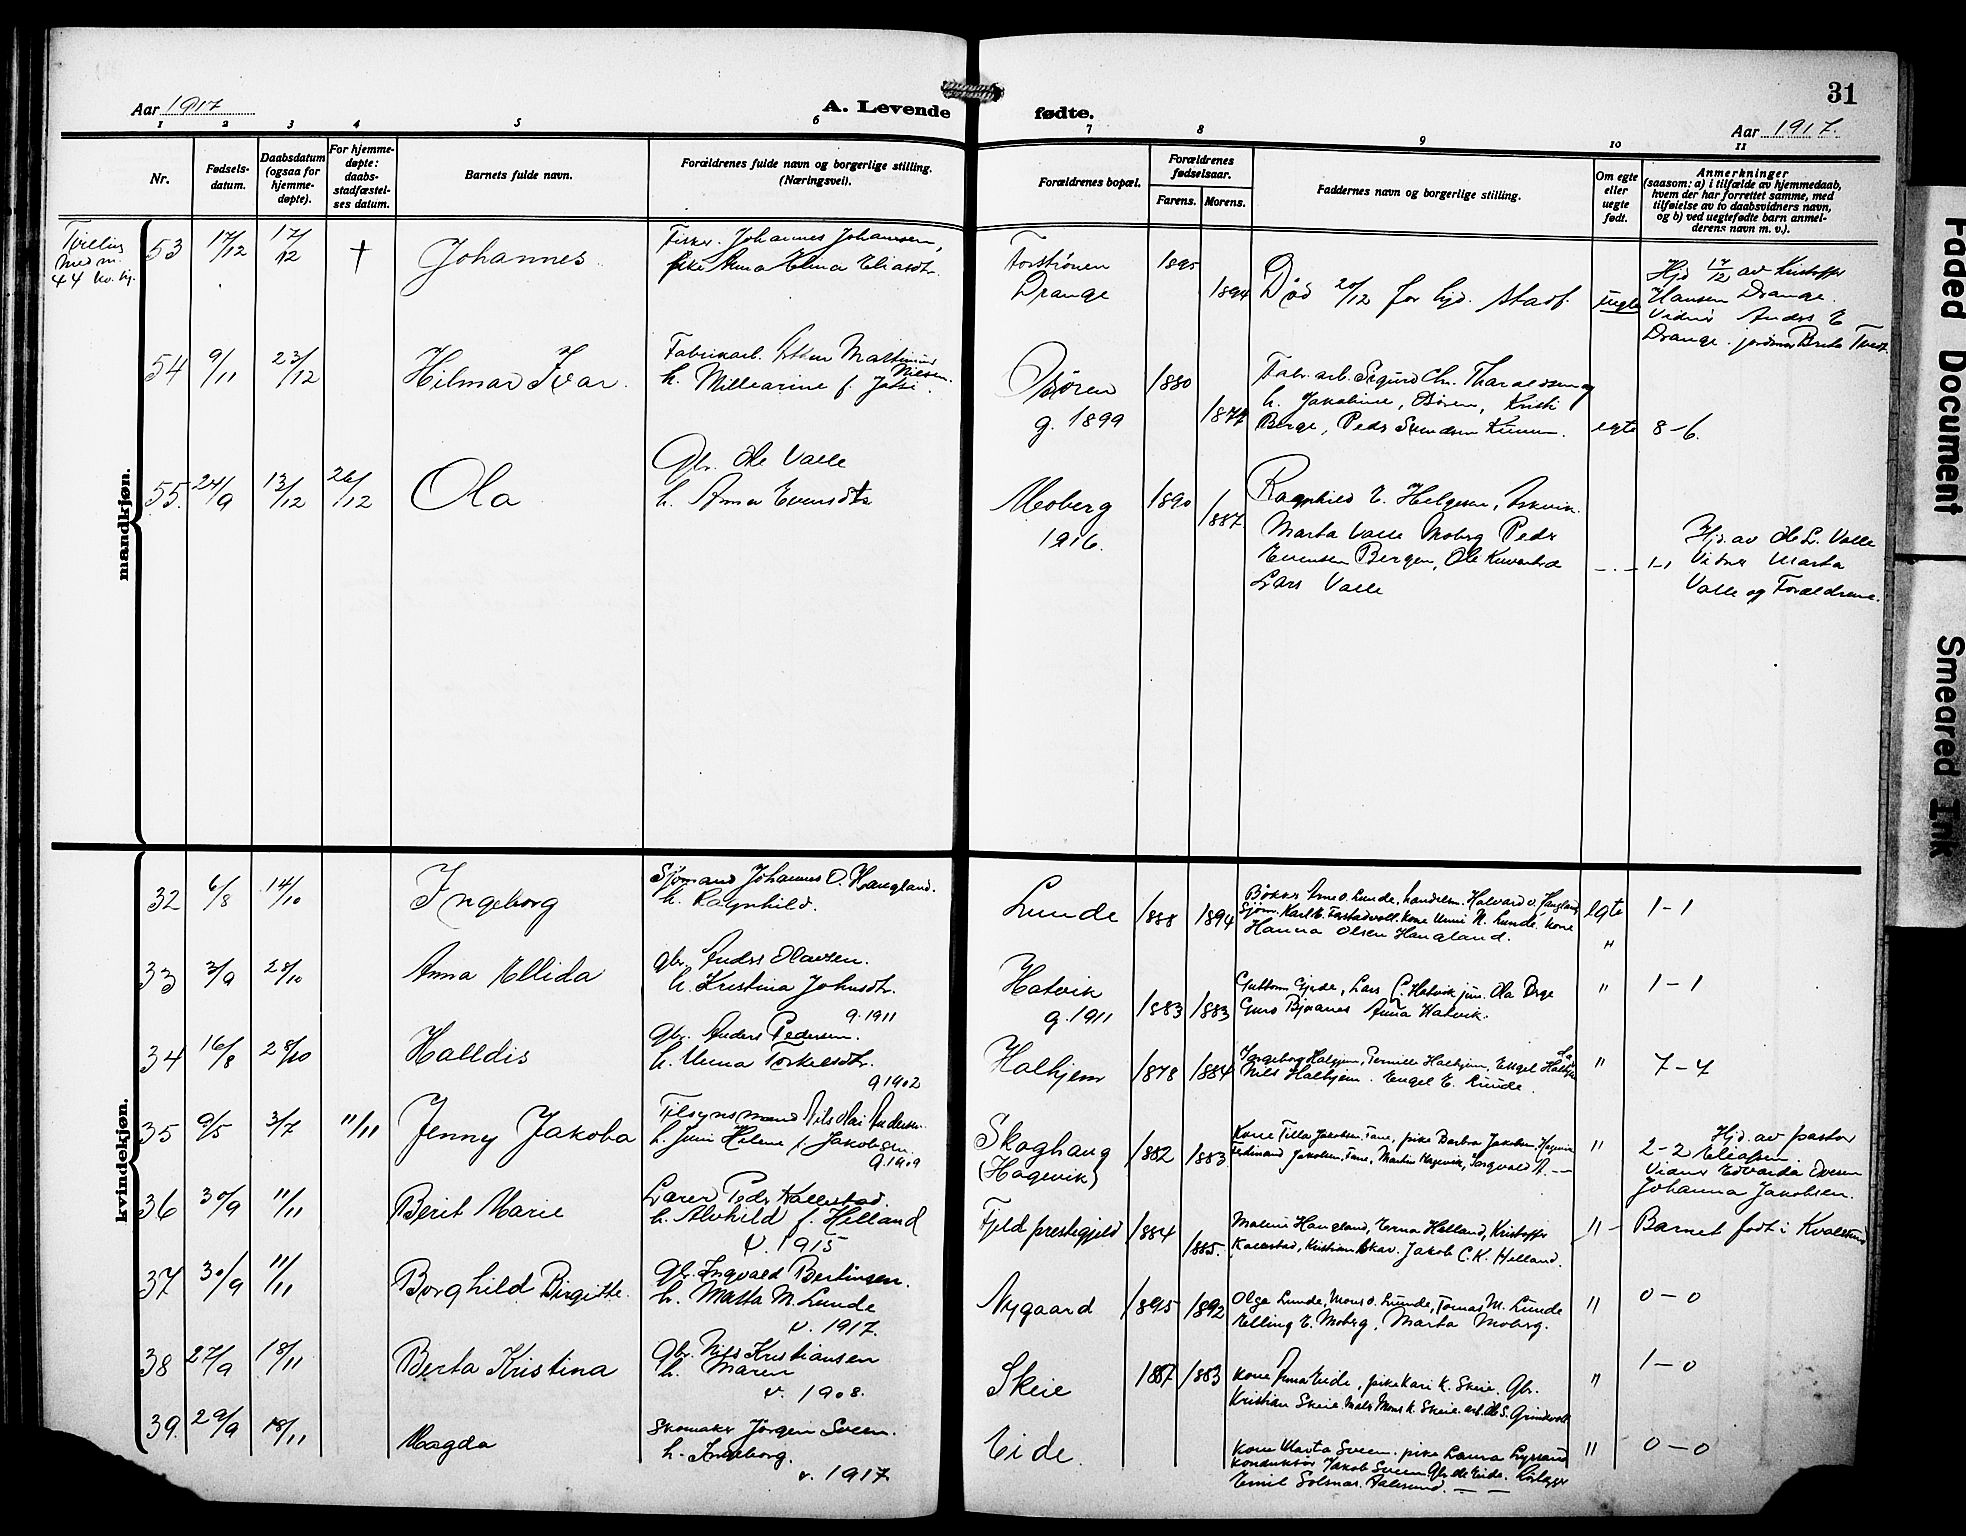 31
Aar 1917
A. Levende
fødte.
Aar 1917.
1 2 3 4 5 6 7 8 9 10 11
Nr.
Fødsels-
datum.
Daabsdatum
(ogsaa for
hjemme-
døpte).
For hjemme-
døpte:
daabs-
stadfæstel-
ses datum.
Barnets fulde navn.
Forældrenes fulde navn og borgerlige stilling.
(Næringsvei).
Forældrenes bopæl.
Forældrenes
fødselsaar.
Farens. Morens.
Faddernes navn og borgerlige stilling.
Om egte
eller
uegte
født.
Anmerkninger
(saasom: a) i tilfælde av hjemmedaab,
hvem der har forrettet samme, med
tilføielse av to daabsvidners navn,
og b) ved uegtefødte barn anmel-
derens navn m. v.).
mandkjøn.
Tvilling
med n.
44
53 17/12 17/12 † Johannes
Fisker Johannes Johansen,
pike Anna Elina Eliasdtr.
Drange
1895 1894
Død 20/12 før hjd. stadf.
uegte
Hjd 17/12 av Kristoffer
Hansen Drange.
Vidner Anders E
Drange. jordmor Brita Tveit
54 9/11 23/12 Hilmar Ivar.
Fabrikarb. Martinius
Nilsen.
h. f.
Osøren
g. 1899
1880 1877
Fabr. arb. Sigurd Chr. Tharaldsen og
h. Jakobine, Osøren, Kristi
Berge, Peder
egte 8-6.
55. 24/9 13/12 26/12 Ola
Gbr. Ole Valle
h. Anna Evensdtr
Moberg
1916.
1890 1887
Ragnhild E. Helgesen, Askvik.
Marta Valle Moberg Peder
Evensen Bergen, Ole
Lars Valle
-.- 1-1
Hjd. av Ole L. Valle
Vidner Marta
Valle og Forældrene.
kvindekjøn.
32 6/8 14/10 Ingeborg
Sjömand Johannes O. Haugland.
h. Ragnhild.
Lunde 1888 1894
Bøkker Arne O. Lunde, handelsm. Halvard O. Haugland
Sjöm. Karl E. kone Unni N. Lunde, kone
Hanna Olsen Haugland.
egte 1-1
"
33 3/9 28/10 Anna Ellida
gbr. Anders Olavsen.
h. Kristina Johnsdtr.
g. 1911
Hatvik
g. 1911
1883 1883
Guttorm Gjerde, Lars C. Hatvik jun. Ola
Guro Bjønnes Anna Hatvik.
" 1-1
34 16/8 28/10 Halldis
gbr. Anders Pedersen.
h. Unna Torkelsdtr.
g 1902
Halhjem 1878 1884
Ingeborg Halhjem, Pernille Halhjem, Engel
Nils Halhjem. Engel E. Lunde.
" 7-4
35 9/5 3/7 11/11 Jenny Jakoba
Tilsynsmand Nils Olai Andersen
h. Helene f. Jakobsen.
g. 1909
Skoghaug
(Hagevik)
1882 1883
Kone Tilla Jakobsen, Fane, pike Barbra Jakobsen, Hagevik
Ferdinand Jakobsen, Fane, Martin Hagevik, Ingvald N. --
" 2-2
Hjd. av pastor
Eliassen
Vidner Edvarda
Johanna Jakobsen.
36 30/9 11/11 Berit Marie
Lærer Peder Kallestad
h. Alvhild f. Helland
v. 1915
Fjeld prestegjeld 1884 1885.
Malene Haugland, Erna Helland, Kristoffer
Kallestad, Kristian Skar. Jakob C. K. Helland.
"
Barnet født i Kvalsund
37 30/9 11/11 Borghild Birgitte.
Gbr. Ingvald Bertinsen.
h. Marta M. Lunde
v. 1917.
Nygaard 1895 1892
Olga Lunde, Mons O. Lunde, Tomas M. Lunde
Elling E. Moberg, Marta Moberg.
" 0-0
38 27/9 18/11 Berta Kristina
Gbr. Nils Kristiansen
h. Maren
v. 1908.
Skeie 1887 1883
Kone Anna Eide, pike Kari K. Skeie. Gbr.
Kristian Skeie. Maler Mons K. Skeie. arb. Ole S. Grindevoll
" 1-0
39. 29/9 18/11 Magda
Skomaker Jörgen Sveen.
h. Ingeborg.
v. 1917
Eide.
Kone Marta Sveen. pike Laura Lyssand
konduktør Jakob Sveen Gbr. Ole Eide.
Emil Solsnes. Aalesund. - -
" 0-0
Faded Document
Smeared Ink